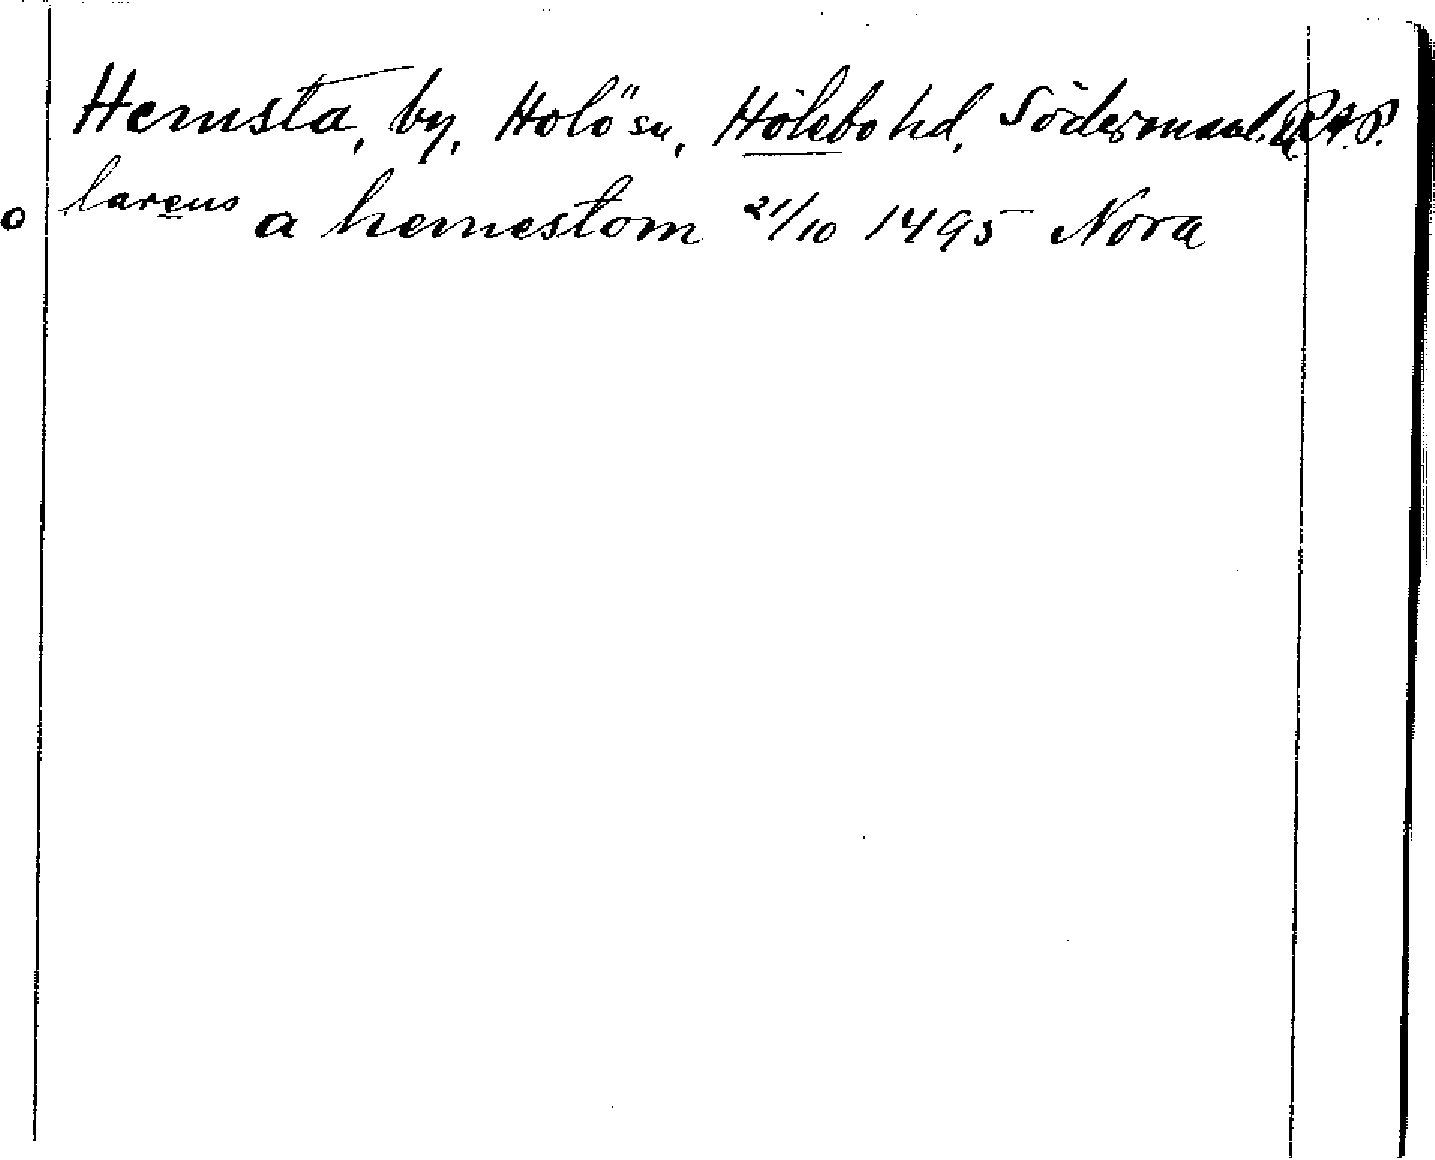 Hernsta, by, Holö sn, Hölebo hd, Södermanl. RAP.
larens a hernestom 21/10 1495 Nora